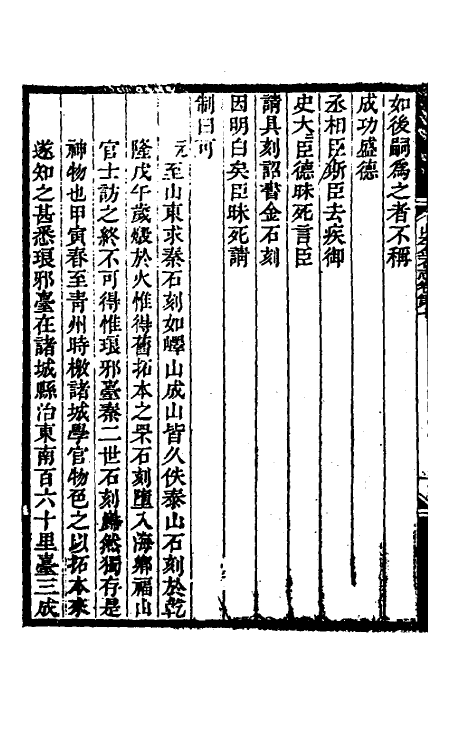 如後嗣爲之者不稱
成功盛德
丞相臣斯臣去疾御
史大臣德昧死言臣
請具刻詔書金石刻
因明白矣臣昧死請
制曰可
元至山東求秦石刻如嶧山成山皆久佚泰山石刻於乾
隆戊午歲燬於火惟得舊拓本之罘石刻墮入海鄉福山
官士訪之終不可得惟琅邪臺秦二世石刻巋然獨存是
神物也甲寅春至青州時檄諸城學官物色之以拓本來
遂知之甚悉琅邪臺在諸城縣治東南百六十里臺三成